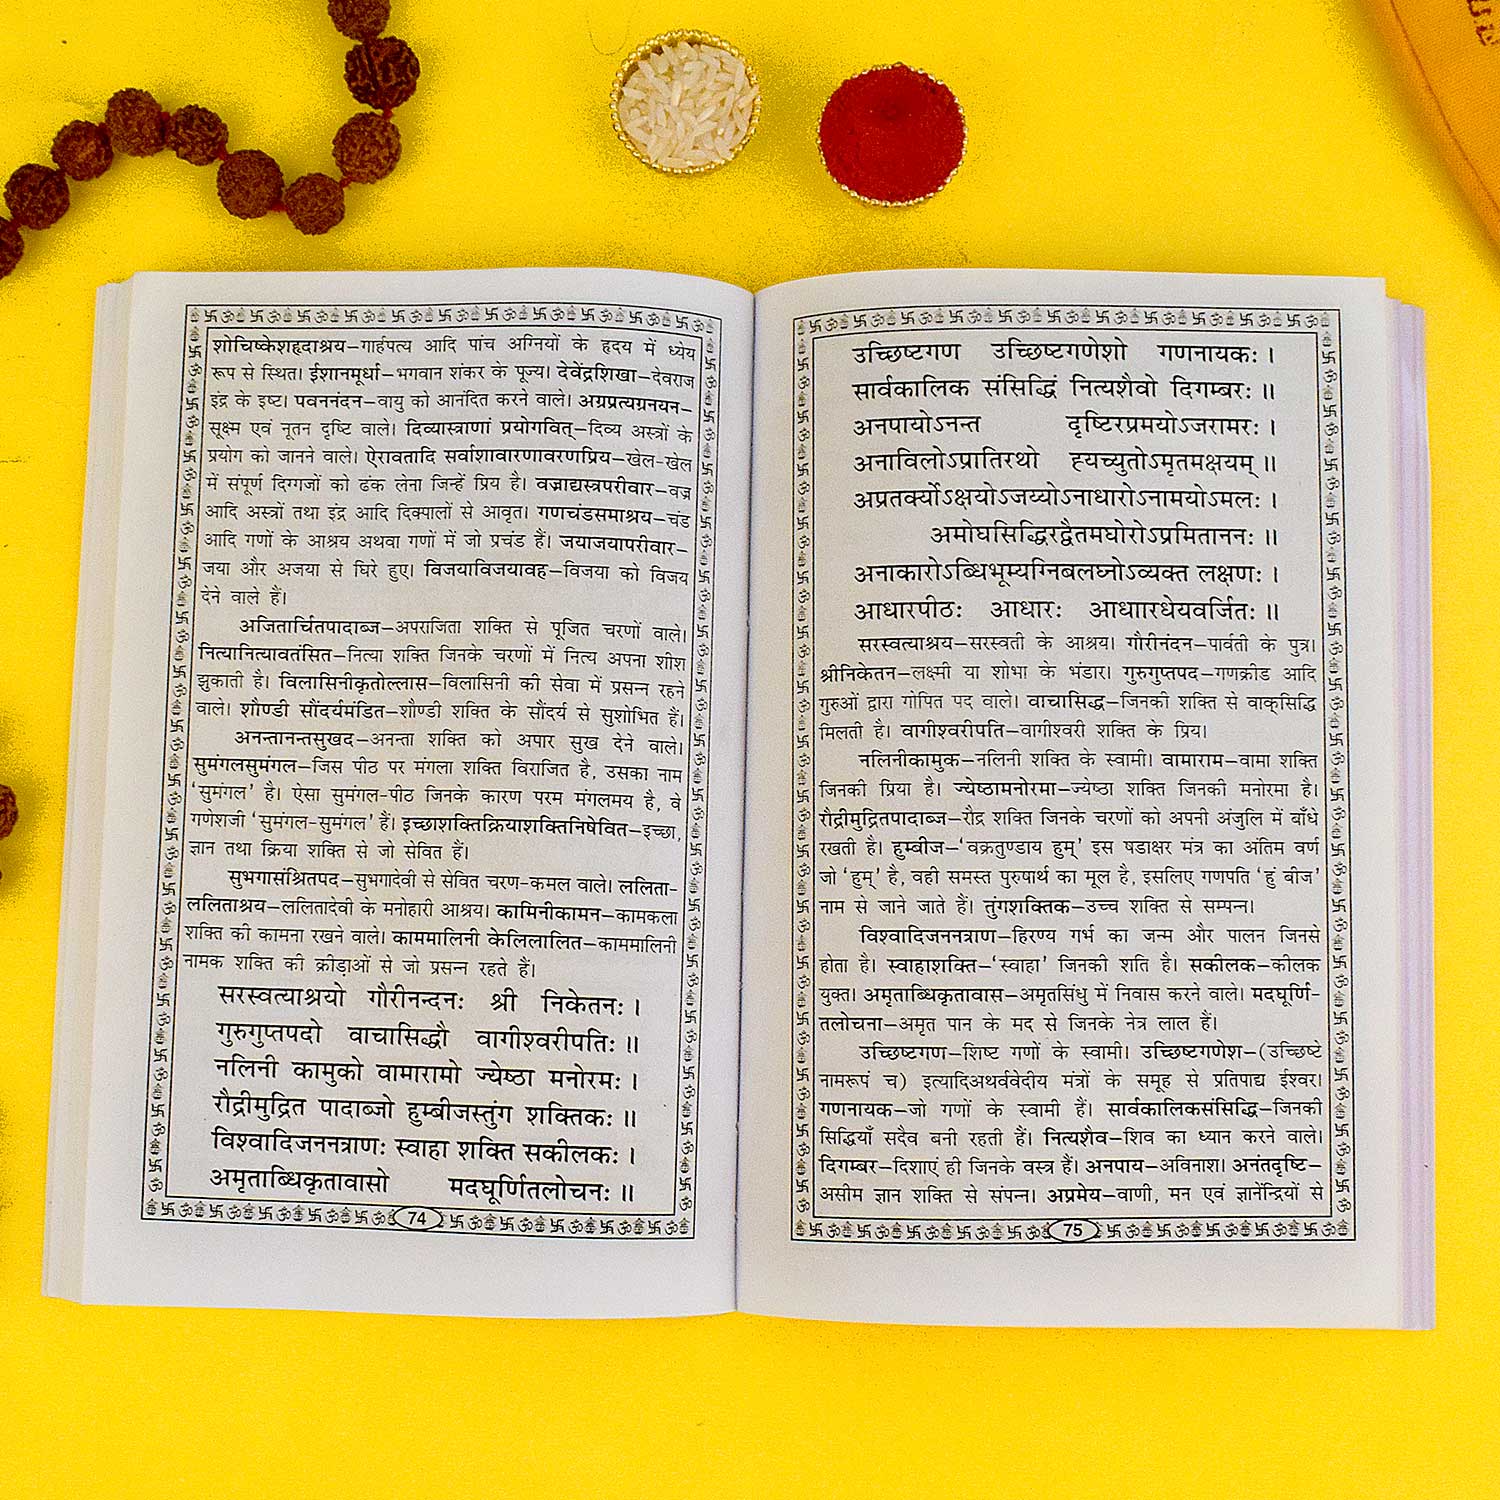 शोचिष्केशहृदाश्रय–गार्हपत्य आदि पांच अग्नियों के हृदय में ध्येय
रूप से स्थित। ईशानमूर्धा–भगवान शंकर के पूज्य। देवेंद्रशिखा–देवराज
इंद्र के इष्ट। पवननंदन–वायु को आनंदित करने वाले। अग्रप्रत्यग्रनयन–
सूक्ष्म एवं नूतन दृष्टि वाले। दिव्यास्त्राणां प्रयोगवित्–दिव्य अस्त्रों के
प्रयोग को जानने वाले। ऐरावतादि सर्वाशावारणावरणप्रिय–खेल-खेल
में संपूर्ण दिग्गजों को ढंक लेना जिन्हें प्रिय है। वज्राद्यस्त्रपरीवार–वज्र
आदि अस्त्रों तथा इंद्र आदि दिक्पालों से आवृत। गणचंडसमाश्रय–चंड
आदि गणों के आश्रय अथवा गणों में जो प्रचंड हैं। जयाजयापरीवार–
जया और अजया से घिरे हुए। विजयाविजयावह–विजया को विजय
देने वाले हैं।
अजितार्चितपादाब्ज–अपराजिता शक्ति से पूजित चरणों वाले।
नित्यानित्यावतंसित–नित्या शक्ति जिनके चरणों में नित्य अपना शीश
झुकाती है। विलासिनीकृतोल्लास–विलासिनी की सेवा में प्रसन्न रहने
वाले। शौण्डी सौंदर्यमंडित–शौण्डी शक्ति के सौंदर्य से सुशोभित हैं।
अनन्तानन्तसुखद–अनन्ता शक्ति को अपार सुख देने वाले।
सुमंगलसुमंगल–जिस पीठ पर मंगला शक्ति विराजित है, उसका नाम
‘सुमंगल’ है। ऐसा सुमंगल-पीठ जिनके कारण परम मंगलमय है, वे
गणेशजी ‘सुमंगल-सुमंगल’ हैं। इच्छाशक्तिक्रियाशक्तिनिषेवित–इच्छा,
ज्ञान तथा क्रिया शक्ति से जो सेवित हैं।
सुभगासंश्रितपद–सुभगादेवी से सेवित चरण-कमल वाले। ललिता-
ललिताश्रय–ललितादेवी के मनोहारी आश्रय। कामिनीकामन–कामकला
शक्ति की कामना रखने वाले। काममालिनी केलिलालित–काममालिनी
नामक शक्ति की क्रीड़ाओं से जो प्रसन्न रहते हैं।
सरस्वत्याश्रयो गौरीनन्दनः श्री निकेतनः।
गुरुगुप्तपदो वाचासिद्धौ वागीश्वरीपतिः॥
नलिनी कामुको वामारामो ज्येष्ठा मनोरमः।
रौद्रीमुद्रित पादाब्जो हुम्बीजस्तुंग शक्तिकः॥
विश्वादिजननत्राणः स्वाहा शक्ति सकीलकः।
अमृताब्धिकृतावासो मदघूर्णितलोचनः॥
74
उच्छिष्टगण उच्छिष्टगणेशो गणनायकः।
सार्वकालिक संसिद्धिं नित्यशैवो दिगम्बरः॥
अनपायोऽनन्त दृष्टिरप्रमयोऽजरामरः।
अनाविलोऽप्रातिरथो ह्यच्युतोऽमृतमक्षयम्॥
अप्रतर्क्योऽक्षयोऽजय्योऽनाधारोऽनामयोऽमलः।
अमोघसिद्धिरद्वैतमघोरोऽप्रमिताननः॥
अनाकारोऽब्धिभूम्यग्निबलघ्नोऽव्यक्त लक्षणः।
आधारपीठः आधारः आधाारधेयवर्जितः॥
सरस्वत्याश्रय–सरस्वती के आश्रय। गौरीनंदन–पार्वती के पुत्र।
श्रीनिकेतन–लक्ष्मी या शोभा के भंडार। गुरुगुप्तपद–गणक्रीड आदि
गुरुओं द्वारा गोपित पद वाले। वाचासिद्ध–जिनकी शक्ति से वाक्सिद्धि
मिलती है। वागीश्वरीपति–वागीश्वरी शक्ति के प्रिय।
नलिनीकामुक–नलिनी शक्ति के स्वामी। वामाराम–वामा शक्ति
जिनकी प्रिया है। ज्येष्ठामनोरमा–ज्येष्ठा शक्ति जिनकी मनोरमा है।
रौद्रीमुद्रितपादाब्ज–रौद्र शक्ति जिनके चरणों को अपनी अंजुलि में बाँधे
रखती है। हुम्बीज–‘वक्रतुण्डाय हुम्’ इस षडाक्षर मंत्र का अंतिम वर्ण
जो ‘हुम्’ है, वही समस्त पुरुषार्थ का मूल है, इसलिए गणपति ‘हुं बीज’
नाम से जाने जाते हैं। तुंगशक्तिक–उच्च शक्ति से सम्पन्न।
विश्वादिजननत्राण–हिरण्य गर्भ का जन्म और पालन जिनसे
होता है। स्वाहाशक्ति–‘स्वाहा’ जिनकी शति है। सकीलक–कीलक
युक्त। अमृताब्धिकृतावास–अमृतसिंधु में निवास करने वाले। मदघूर्णि-
तलोचना–अमृत पान के मद से जिनके नेत्र लाल हैं।
उच्छिष्टगण–शिष्ट गणों के स्वामी। उच्छिष्टगणेश–(उच्छिष्टे
नामरूपं च) इत्यादिअथर्ववेदीय मंत्रों के समूह से प्रतिपाद्य ईश्वर।
गणनायक–जो गणों के स्वामी हैं। सार्वकालिकसंसिद्धि–जिनकी
सिद्धियाँ सदैव बनी रहती हैं। नित्यशैव–शिव का ध्यान करने वाले।
दिगम्बर–दिशाएं ही जिनके वस्त्र हैं। अनपाय–अविनाश। अनंतदृष्टि–
असीम ज्ञान शक्ति से संपन्न। अप्रमेय–वाणी, मन एवं ज्ञानेंन्द्रियों से
75